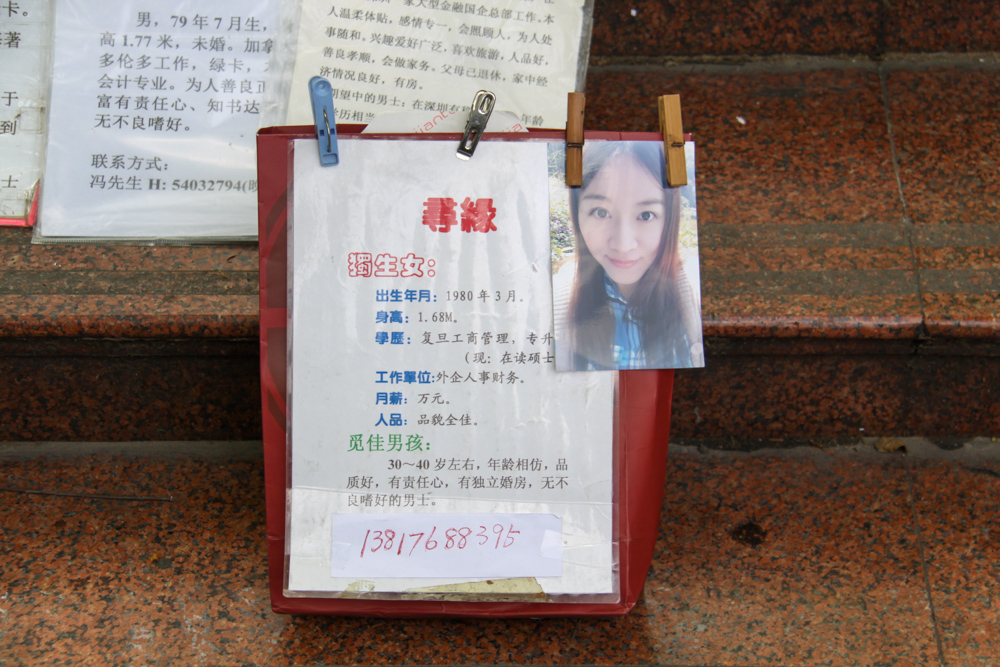 卡。
著
于
到
士
男，79 年 7 月生，
高 1.77 米，未婚。加拿
多伦多工作，绿卡，
会计专业。为人善良正
富有责任心、知书达
无不良嗜好。
联系方式：
冯先生 H: 54032794(晚
家大型金融国企总部工作。本
人温柔体贴，感情专一，会照顾人，为人处
事随和。兴趣爱好广泛，喜欢旅游，人品好，
善良孝顺，会做家务。父母已退休，家中经
济情况良好，有房。
期望中的男士：在深圳有
年龄
学历相当
尋緣
獨生女：
出生年月：1980 年 3 月。
身高：1.68M。
學歷：复旦工商管理，专升
（现：在读硕士
工作單位:外企人事财务。
月薪：万元。
人品：品貌全佳。
觅佳男孩：
30～40 岁左右，年龄相仿，品
质好，有责任心，有独立婚房，无不
良嗜好的男士。
13817688395